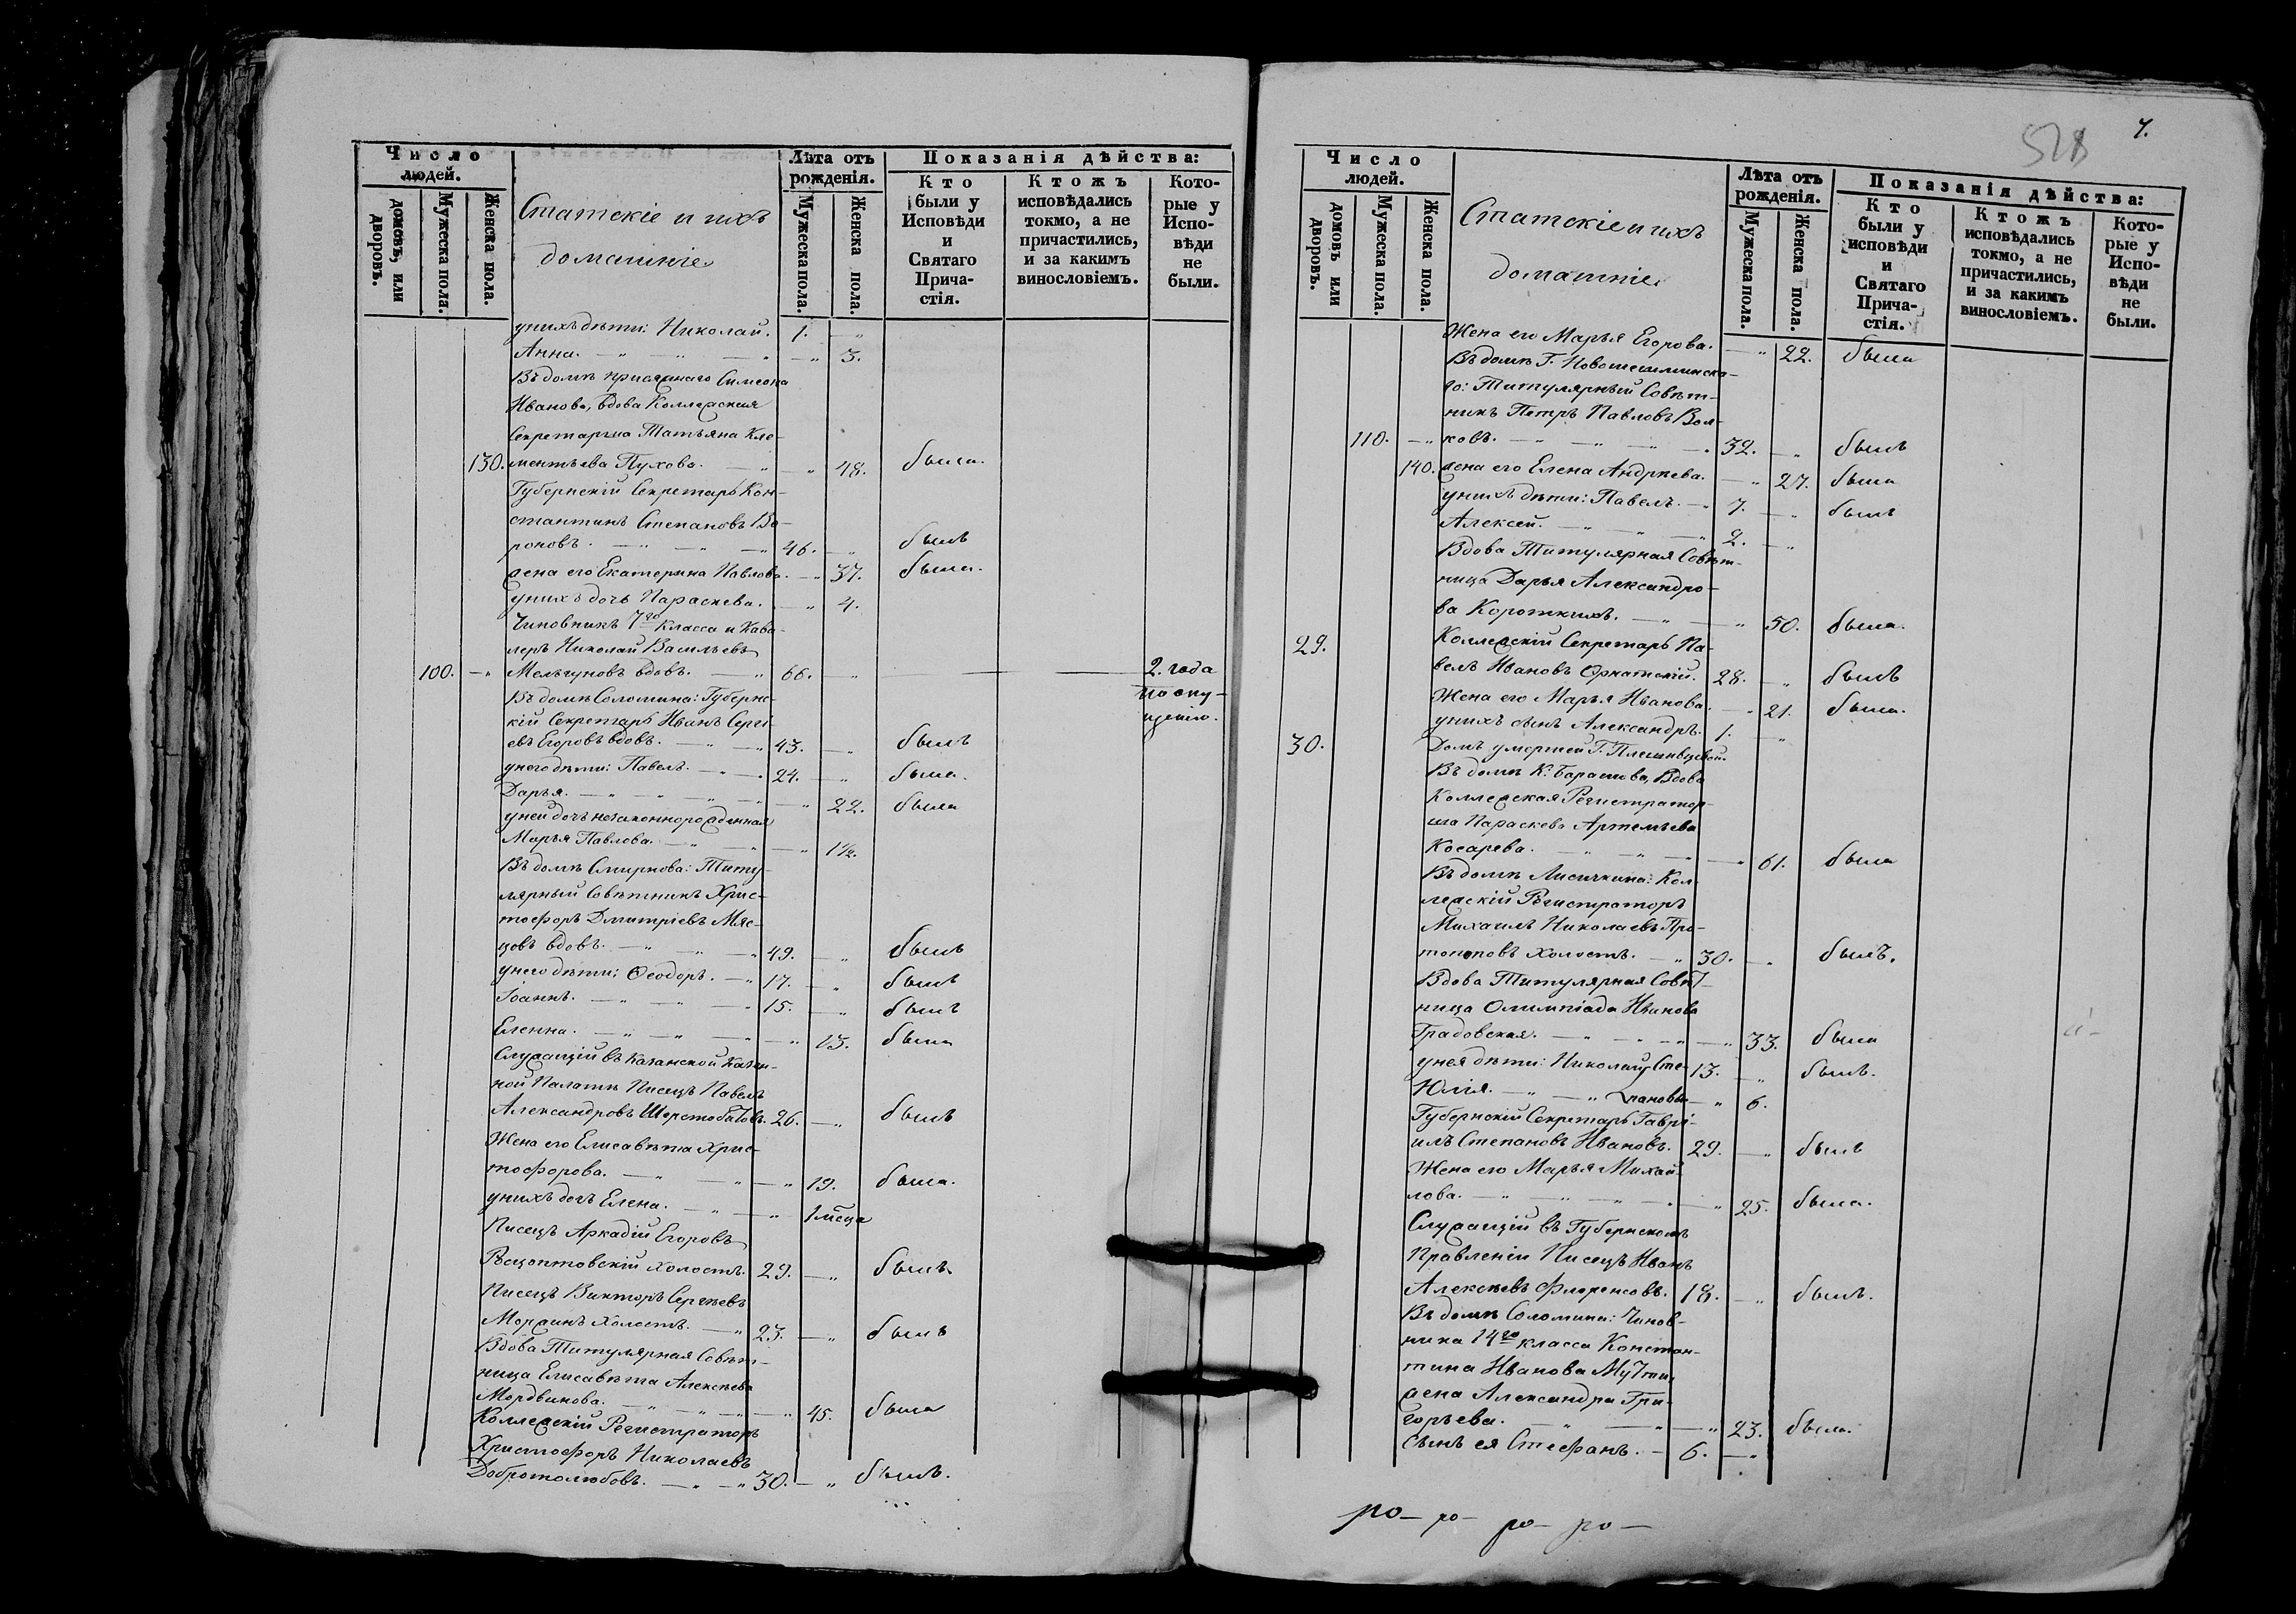 Число людей.
домовъ, или дворовъ.
Мужеска пола.
Женска пола.
Статскіе и ихъ
домашніе
Лѣта отъ рожденія.
Мужеска пола.
Женска пола.
Показанія дѣйства:
Кто были у Исповѣди и Святаго Причастія.
Ктожъ исповѣдались токмо, а не причастились, и за какимъ винословіемъ.
Которые у Исповѣди не были.
у нихъ дѣти: Николай. 1. — „
Анна. — „ — „ — „ — „ 3.
Въ домѣ присяжнаго Симеона
Иванова, вдова Коллежская
Секретарша Татьяна Кле-
130. ментьева Пухова. — „ — „ 48. была.
Губернскій Секретарь Кон-
стантинъ Степановъ Во-
роновъ. — „ — — „ 46. — „ былъ
жена его Екатерина Павлова. — „ 37. была.
у нихъ дочь Параскева. — „ 4.
Чиновникъ 7го класса и Кава-
леръ Николай Васильевъ
100. — „ Мельгуновъ вдовъ. — „ 66. — „ 2. года
по опу-
щенію.
Въ домѣ Соломина: Губернс-
кій Секретарь Иванъ Сергѣ-
евъ Егоровъ вдовъ. — „ — „ 43. — „ былъ
у него дѣти: Павелъ. — „ — „ 24. — „ былъ.
Дарья. — „ — „ — „ — „ — „ 22. была
у ней дочь незаконнорожденная
Марья Павлова. — „ — „ — „ 1½.
Въ домѣ Смирнова: Титу-
лярный Совѣтникъ Хрис-
тофоръ Дмитріевъ Мяс-
цовъ вдовъ. — „ — — „ 49. — „ былъ
у него дѣти: Ѳеодоръ. — „ 17. — „ былъ
Іоаннъ. — „ — „ — „ 15. — „ былъ
Еленна. — „ — „ — „ — „ 13. была
Служащій въ Казанской Казен-
ной Палатѣ Писецъ Павелъ
Александровъ Шерстобитовъ. 26. — „ былъ
Жена его Елисавѣта Хрис-
тофорова. — „ — „ — „ 19. была.
у нихъ дочь Елена. — „ — „ 1 мѣсца
Писецъ Аркадій Егоровъ
холостъ. 29. — „ былъ.
Писецъ Викторъ Сергѣевъ
Моржинъ холостъ. — „ 23. — „ былъ
Вдова Титулярная Совѣт-
ница Елисавѣта Алексѣева
Мордвинова. — „ — „ — „ — „ 45. была
Коллежскій Регистраторъ
Христофоръ Николаевъ
Добротолюбовъ. — „ — „ 30. — „ былъ.
528
7.
Число людей.
домовъ или дворовъ.
Мужеска пола.
Женска пола.
Статскіе и ихъ
домашніе
Лѣта отъ рожденія.
Мужеска пола.
Женска пола.
Показанія дѣйства:
Кто были у исповѣди и Святаго Причастія.
Ктожъ исповѣдались токмо, а не причастились, и за какимъ винословіемъ.
Которые у Исповѣди не были.
Жена его Марья Егорова. — „ 22. была
Въ домѣ Г. Новошешминска-
го: Титулярный Совѣт-
никъ Петръ Павловъ Вол-
110. — „ ковъ. — „ — „ — „ 32. — „ былъ
140. жена его Елена Андрѣева. — „ 27. была
у нихъ дѣти: Павелъ. — „ 7. — „ былъ
Алексѣй. — „ — „ — „ 2. — „
Вдова Титулярная Совѣт-
ница Дарья Александро-
ва Короткихъ. — „ — „ 50. была.
29. Коллежскій Секретарь Па-
велъ Ивановъ Орнатскій. 28. — „ былъ
Жена его Марья Иванова. — „ 21. была.
у нихъ сынъ Александръ. 1. — „
30. Домъ умершей Г.
Въ домѣ К. Баратова, Вдова
Коллежская Регистратор-
ша Параскева Артемьева
Косарева. — „ — „ — — „ 61. была
Въ домѣ Лисичкина: Кол-
лежскій Регистраторъ
Михаилъ Николаевъ Про-
топоповъ холостъ. — „ 30. — „ былъ.
Вдова Титулярная Совѣт-
ница Олимпіада Иванова
Градовская. — „ — „ — „ 33. была
у нея дѣти: Николай Сте- 13. — „ былъ.
Юлія. — „ — „ пановы — „ 6.
Губернскій Секретарь Гаврі-
илъ Степановъ Ивановъ. 29. — „ былъ
Жена его Марья Михай-
лова. — „ — „ — „ — „ 25. была.
Служащій въ Губернскомъ
Правленіи Писецъ Иванъ
Алексѣевъ Флоренсовъ. 18. — „ былъ.
Въ домѣ Соломина: Чинов-
ника 14го класса Констан-
тина Иванова
жена Александра Гри-
горьева. — „ — — „ 23. была.
Сынъ ея Стефанъ. — 6. — „
ро— ро— ро— ро—